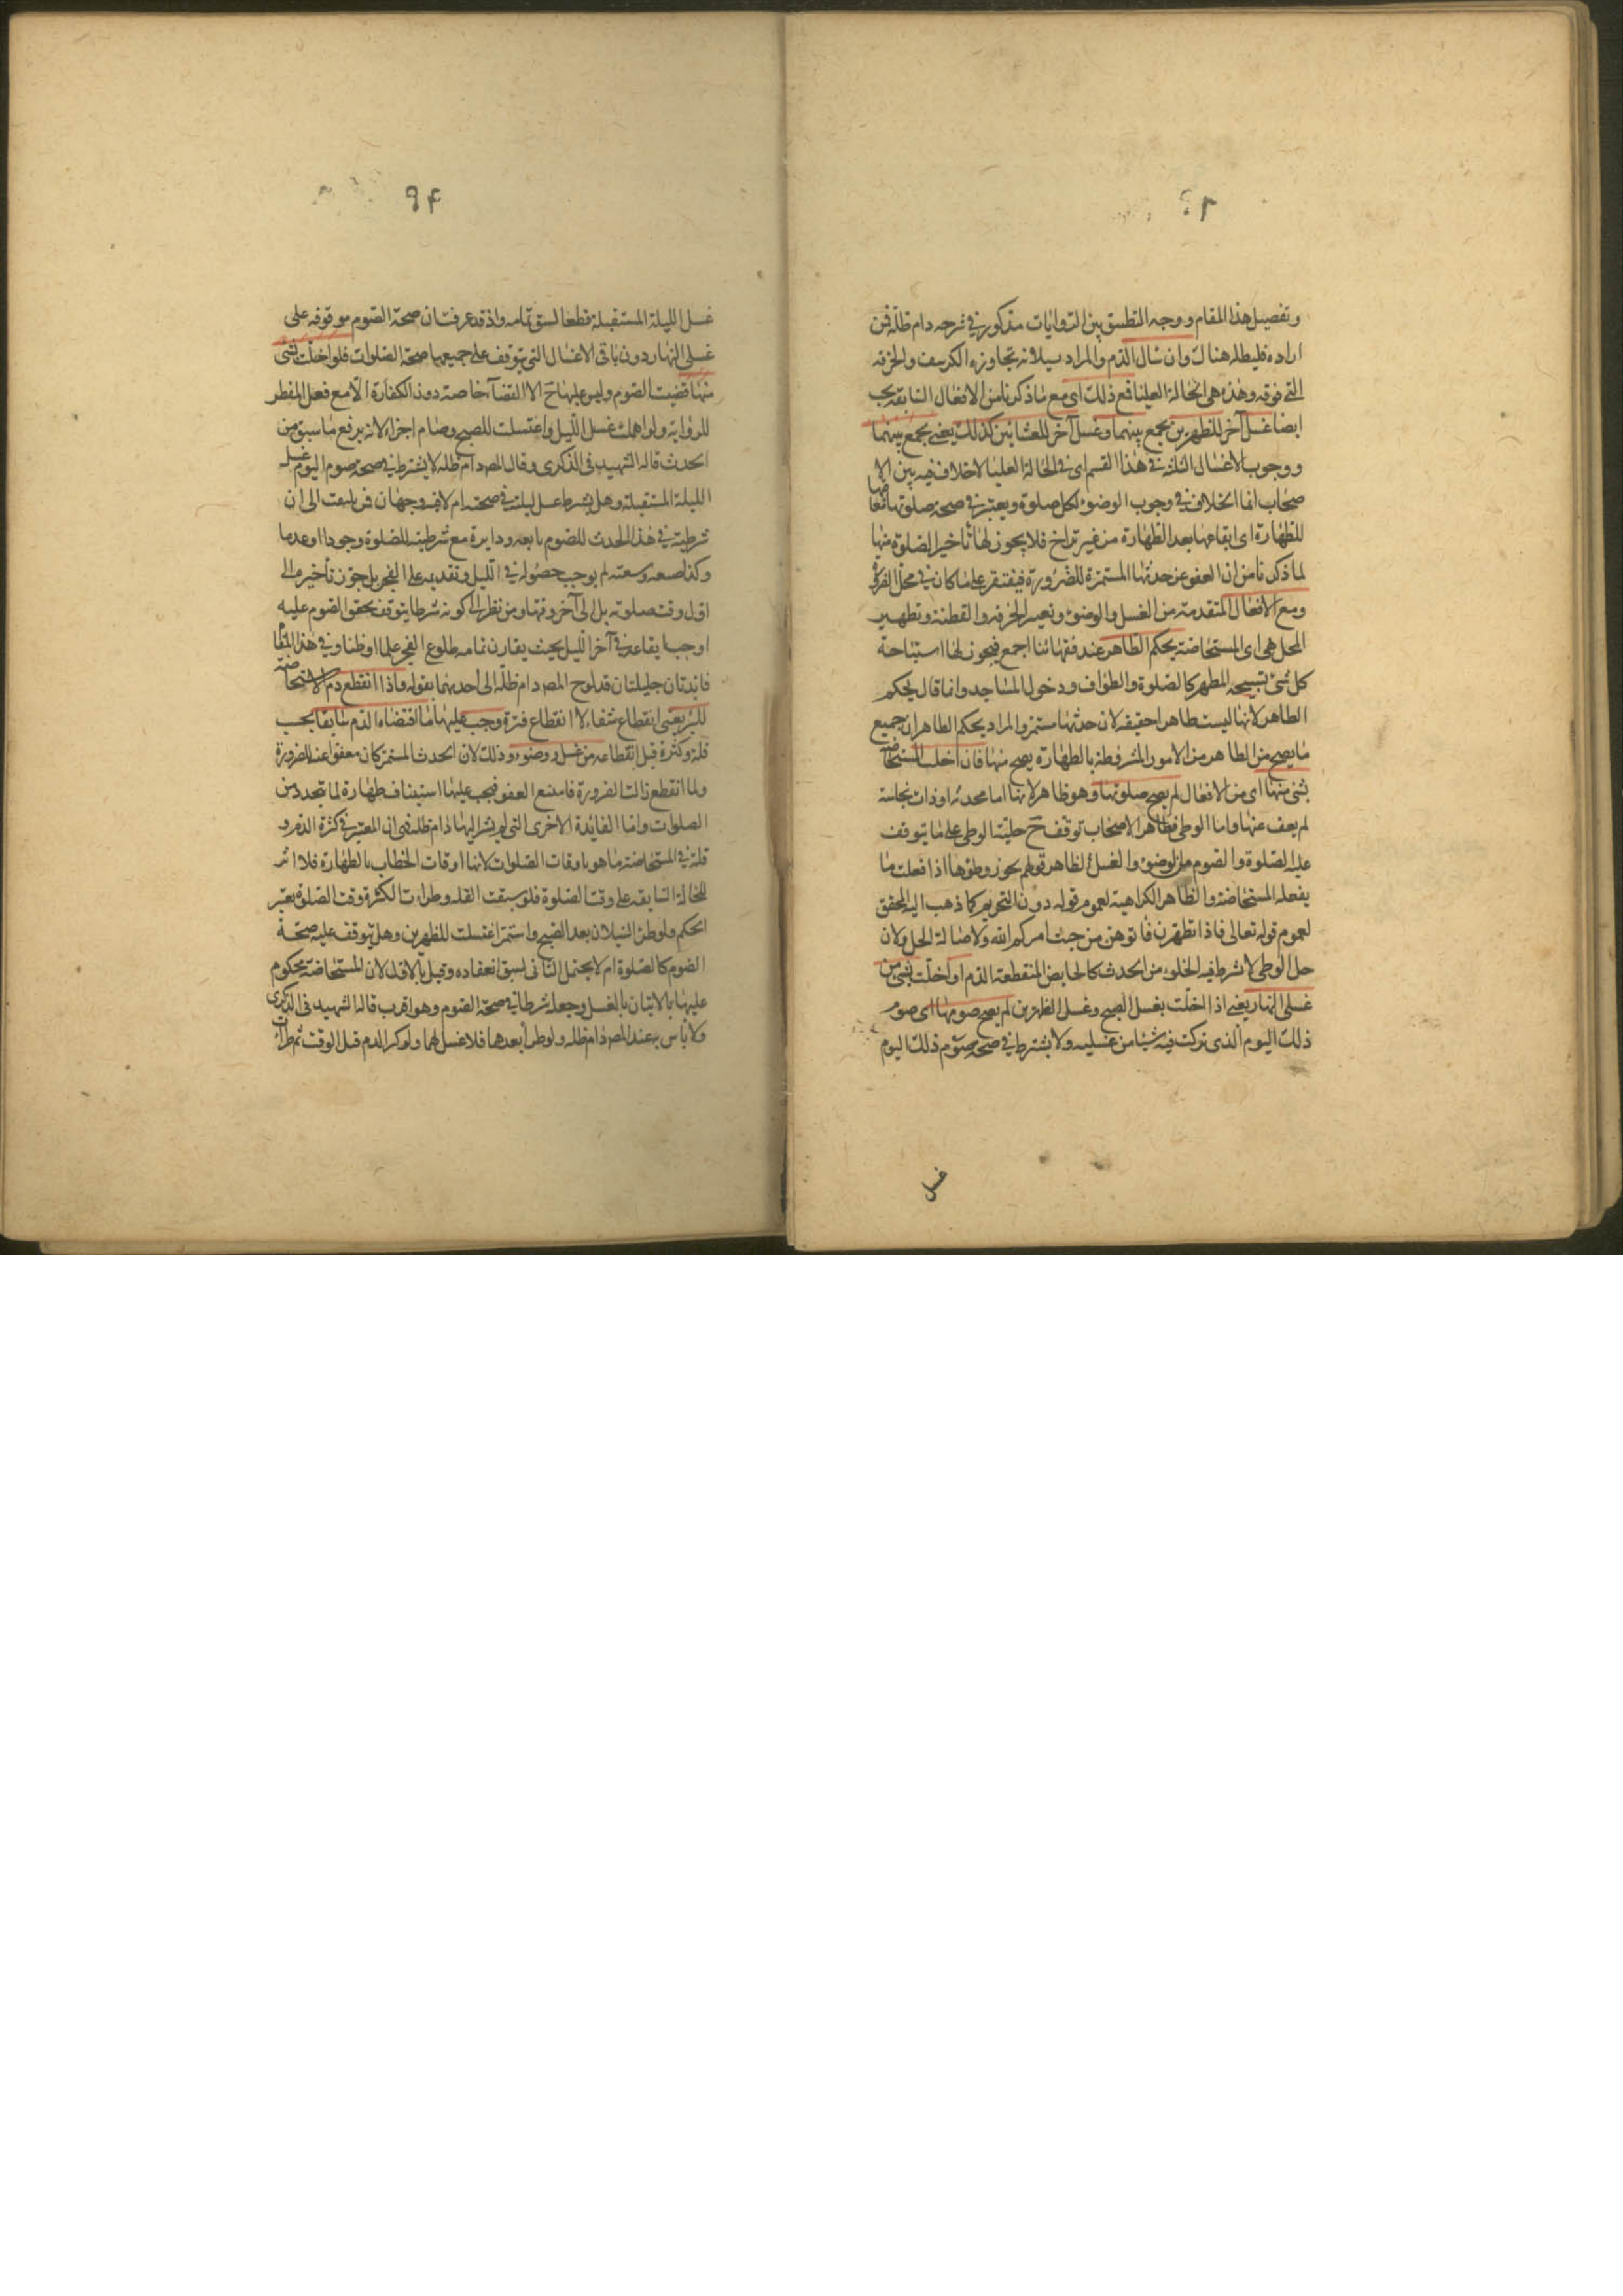 وتفصيل هذا المقام ووجه التطبيق بين الروايات مذكور في شرحه دام ظله فمن
اراده فليطلبه هناك وان سال الدم والمراد بسيلانه تجاوزه الكرسف والخرقه
التي فوقه وهذه هي الحالة العليا فمع ذلك اى مع ما ذكرنا من الافعال السابقه يجب
ايضا غسل آخر للظهرين تجمع بينهما وغسل آخر للعشائين كذلك يعني يجمع بينهما
ووجوب الاغسال الثلثة في هذا القسم اى في الحالة العليا لا خلاف فيه بين الا
صحاب انما الخلاف في وجوب الوضوء لكل صلوة ويعتبر في صحة صلوتها تعاقبها
للطهارة اى ايقاعها بعد الطهارة من غير تراخ فلا يجوز لها تأخير الصلوة منها
لما ذكرنا من ان العفو عن حدثها المستمرة للضرورة فيقتصر على ما كان في محل الضرورة
ومع الافعال المتقدمة من الغسل والوضوء وتغيير الخرقه والقطنة وتطهير
المحل هي اى المستحاضة بحكم الطاهر عند فقهائنا اجمع فيجوز لها استباحة
كل شئ تبيحه المطهر كالصلوة والطواف ودخول المساجد وانما قال بحكم
الطاهر لانها ليست طاهرا حقيقه لان حدثها مستمر والمراد بحكم الطاهر ان جميع
ما يصح من الطاهر من الامور المشروطة بالطهارة يصح منها فان اخلت المستحاضة
بشئ منها اى من الافعال لم يصح صلوتها وهو ظاهر لانها اما محدثه او ذات نجاسة
لم يعف عنها واما الوطى فظاهر الاصحاب توقف ح حلية الوطى على ما يتوقف
عليه الصلوة والصوم من الوضوء والغسل لظاهر قولهم يجوز وطؤها اذا فعلت ما
يفعله المستحاضة والظاهر الكراهية لعموم قوله دون التحريم كما ذهب اليه المحقق
لعموم قوله تعالى فاذا تطهرن فاتوهن من حيث امركم الله ولاصالة الحل ولان
حل الوطى لا يشترط فيه الخلو من الحدث كالحايض المنقطعة الدم او اخلت بشئ من
غسلى النهار يعني اذا اخلت بغسل الصبح وغسل الظهرين لم يصح صومها اى صوم
ذلك اليوم الذى تركت فيه شيئا من غسليه ولا يشترط في صحة صوم ذلك اليوم
غسل
٩٤
غسل الليلة المستقبلة قطعا لسبق تمامه واذ قد عرفت ان صحة الصوم موقوفه على
غسلى النهار دون باقى الاغسال التى يتوقف على جميعها صحة الصلوات فلو اخلت بشئ
منها قضيت الصوم وليس عليها ح الا القضاء خاصة دون الكفارة الا مع فعل المفطر
للرواية ولو اهملت غسل الليل واغتسلت للصبح وصام اجزاء لانه يرفع ما سبق من
الحدث قاله الشهيد فى الذكرى وقال المص دام ظله لا يشترط في صحة صوم اليوم غسل
الليلة المستقبلة وهل يشترط غسل ليلته في صحته ام لا فيه وجهان فمن يلتفت الى ان
شرطيته في هذا الحدث للصوم تابعه ودايرة مع شرطيته للصلوة وجودا وعدما
وكذا وسعته لم يوجب حصوله في الليل وتقديمه على الفجر بل جوز تأخيره الى
اول وقت صلوته بل الى آخر وقتها ومن نظر الى كونه شرطا يتوقف تحقق الصوم عليه
اوجب ايقاعه في آخر الليل بحيث يقارن تمامه طلوع الفجر علما او ظنا وفي هذا المقام
فايدتان جليلتان قد لوح المص دام ظله الى احديهما بقوله واذا انقطع دم الاستحاضة
للبرء يعنى انقطاع شفاء لا انقطاع فترة وجب عليها ما اقتضاه الدم سابقا بحسب
قلته وكثرته قبل انقطاعه من غسل ووضوء وذلك لان الحدث المستمر كان معفوا عند الضرورة
ولما انقطع زالت الضرورة فامتنع العفو فيجب عليها استيناف طهارة لما يتجدد من
الصلوات واما الفايدة الاخرى التى لم يشر اليها دام ظله فهى ان المعتبر في كثرة الدم و
قلته في المستحاضة ما هو باوقات الصلوات لانها اوقات الخطاب بالطهارة فلا اثر
للحالة السابقه على وقت الصلوة فلو سبقت القله وطرات الكثرة وقت الصلوة تغير
الحكم ولو طرء السيلان بعد الصبح واستمر اغتسلت للظهرين وهل يتوقف عليه صحة
الصوم كالصلوة ام لا يحتمل الثانى لسبق انعقاده وقيل بالاول لان المستحاضة محكوم
عليها بالاتيان بالغسل وجعله شرطا في صحة الصوم وهو اقرب قاله الشهيد فى الذكرى
ولا باس به عند المص دام ظله ولو طرأ بعدها فلا غسل لهما ولو كثر الدم قبل الوقت ثم طرات